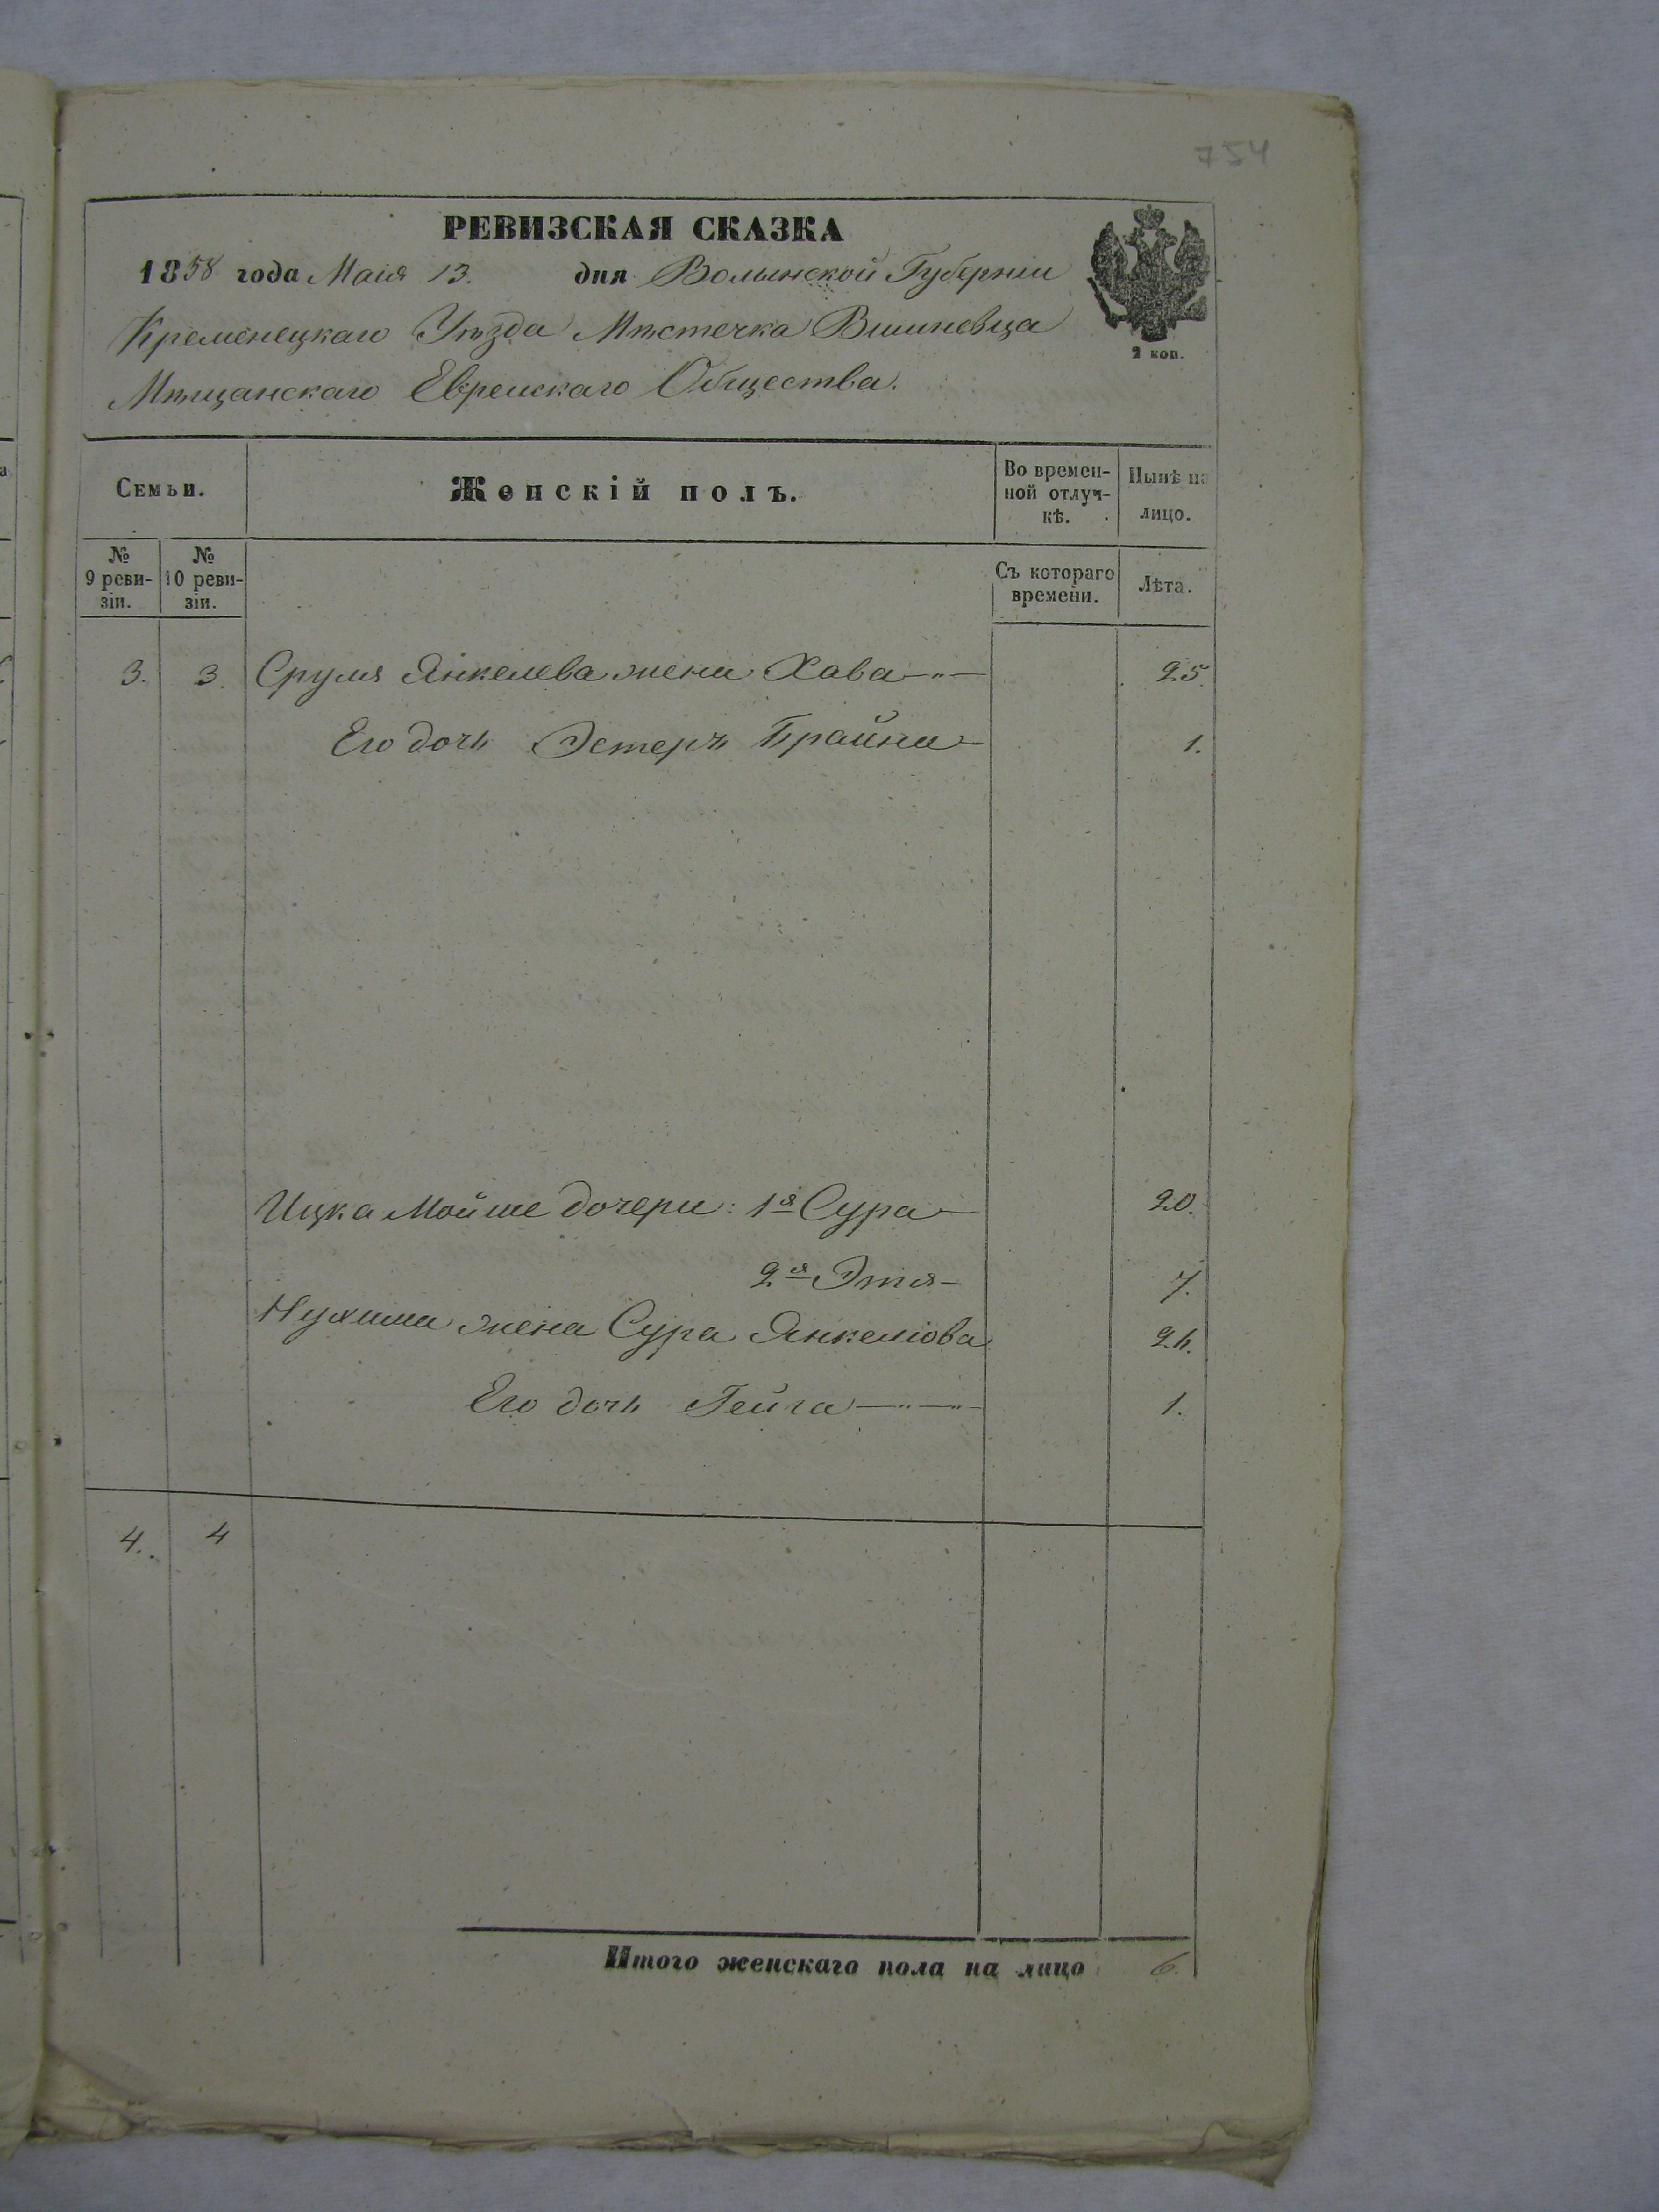 754
РЕВИЗСКАЯ СКАЗКА
1858 года Маія 13. дня Волынской Губерніи
Кременецкаго Уѣзда Мѣстечка Вишневца
2 коп.
Мѣщанскаго Еврейскаго Общества.
Семьи. Женскій полъ. Во времен-ной отлуч-кѣ. Нынѣ на лицо.
№ 9 реви-зіи. № 10 реви-зіи. Съ котораго времени. Лѣта.
3. 3. Сруля Янкелева жена Хава 25.
Его дочь Эстеръ Брайна 1.
Ицка Мойше дочери: 1я Сура 20.
2я Этя 7.
Нухима жена Сура Янкеліова 24.
Его дочь Гейга 1.
4. 4
Итого женскаго пола на лицо 6.